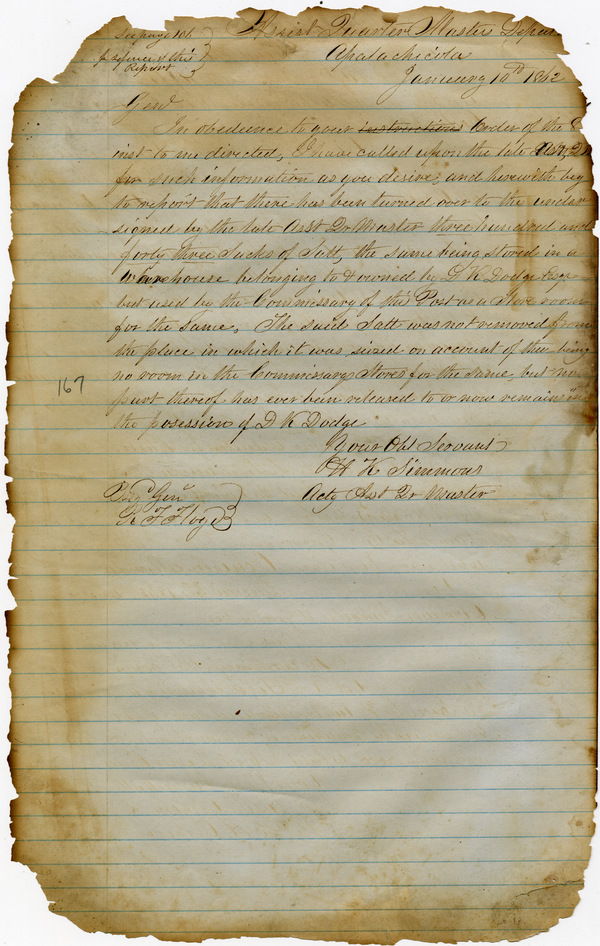 See page 101
for referred this
Report
Assist Quarter Master Depar
Apalachicola
January 10th 1862
Genl
In obedience to your instructions order of the
inst to me directed, I have called upon the late
for such information as you desire, and herewith beg
to report that there has been turned over to the under
signed by the late Asst Qr Master three hundred and
forty three Sacks of Salt, the same being stored in a
warehouse belonging to & owned by D K Dodge Esqr
but used by the Commissary of this Post as a Store room
for the same, The said Salt was not removed from
the place in which it was siezed on account of their being
no room in the Commissary Stores for the same, but no
part thereof has ever been released to or now remains in
the posession of D K Dodge
Your Obt Servant
H K Simmons
Actg Asst Qr Master
Brigd Genl
R F Floyd
167